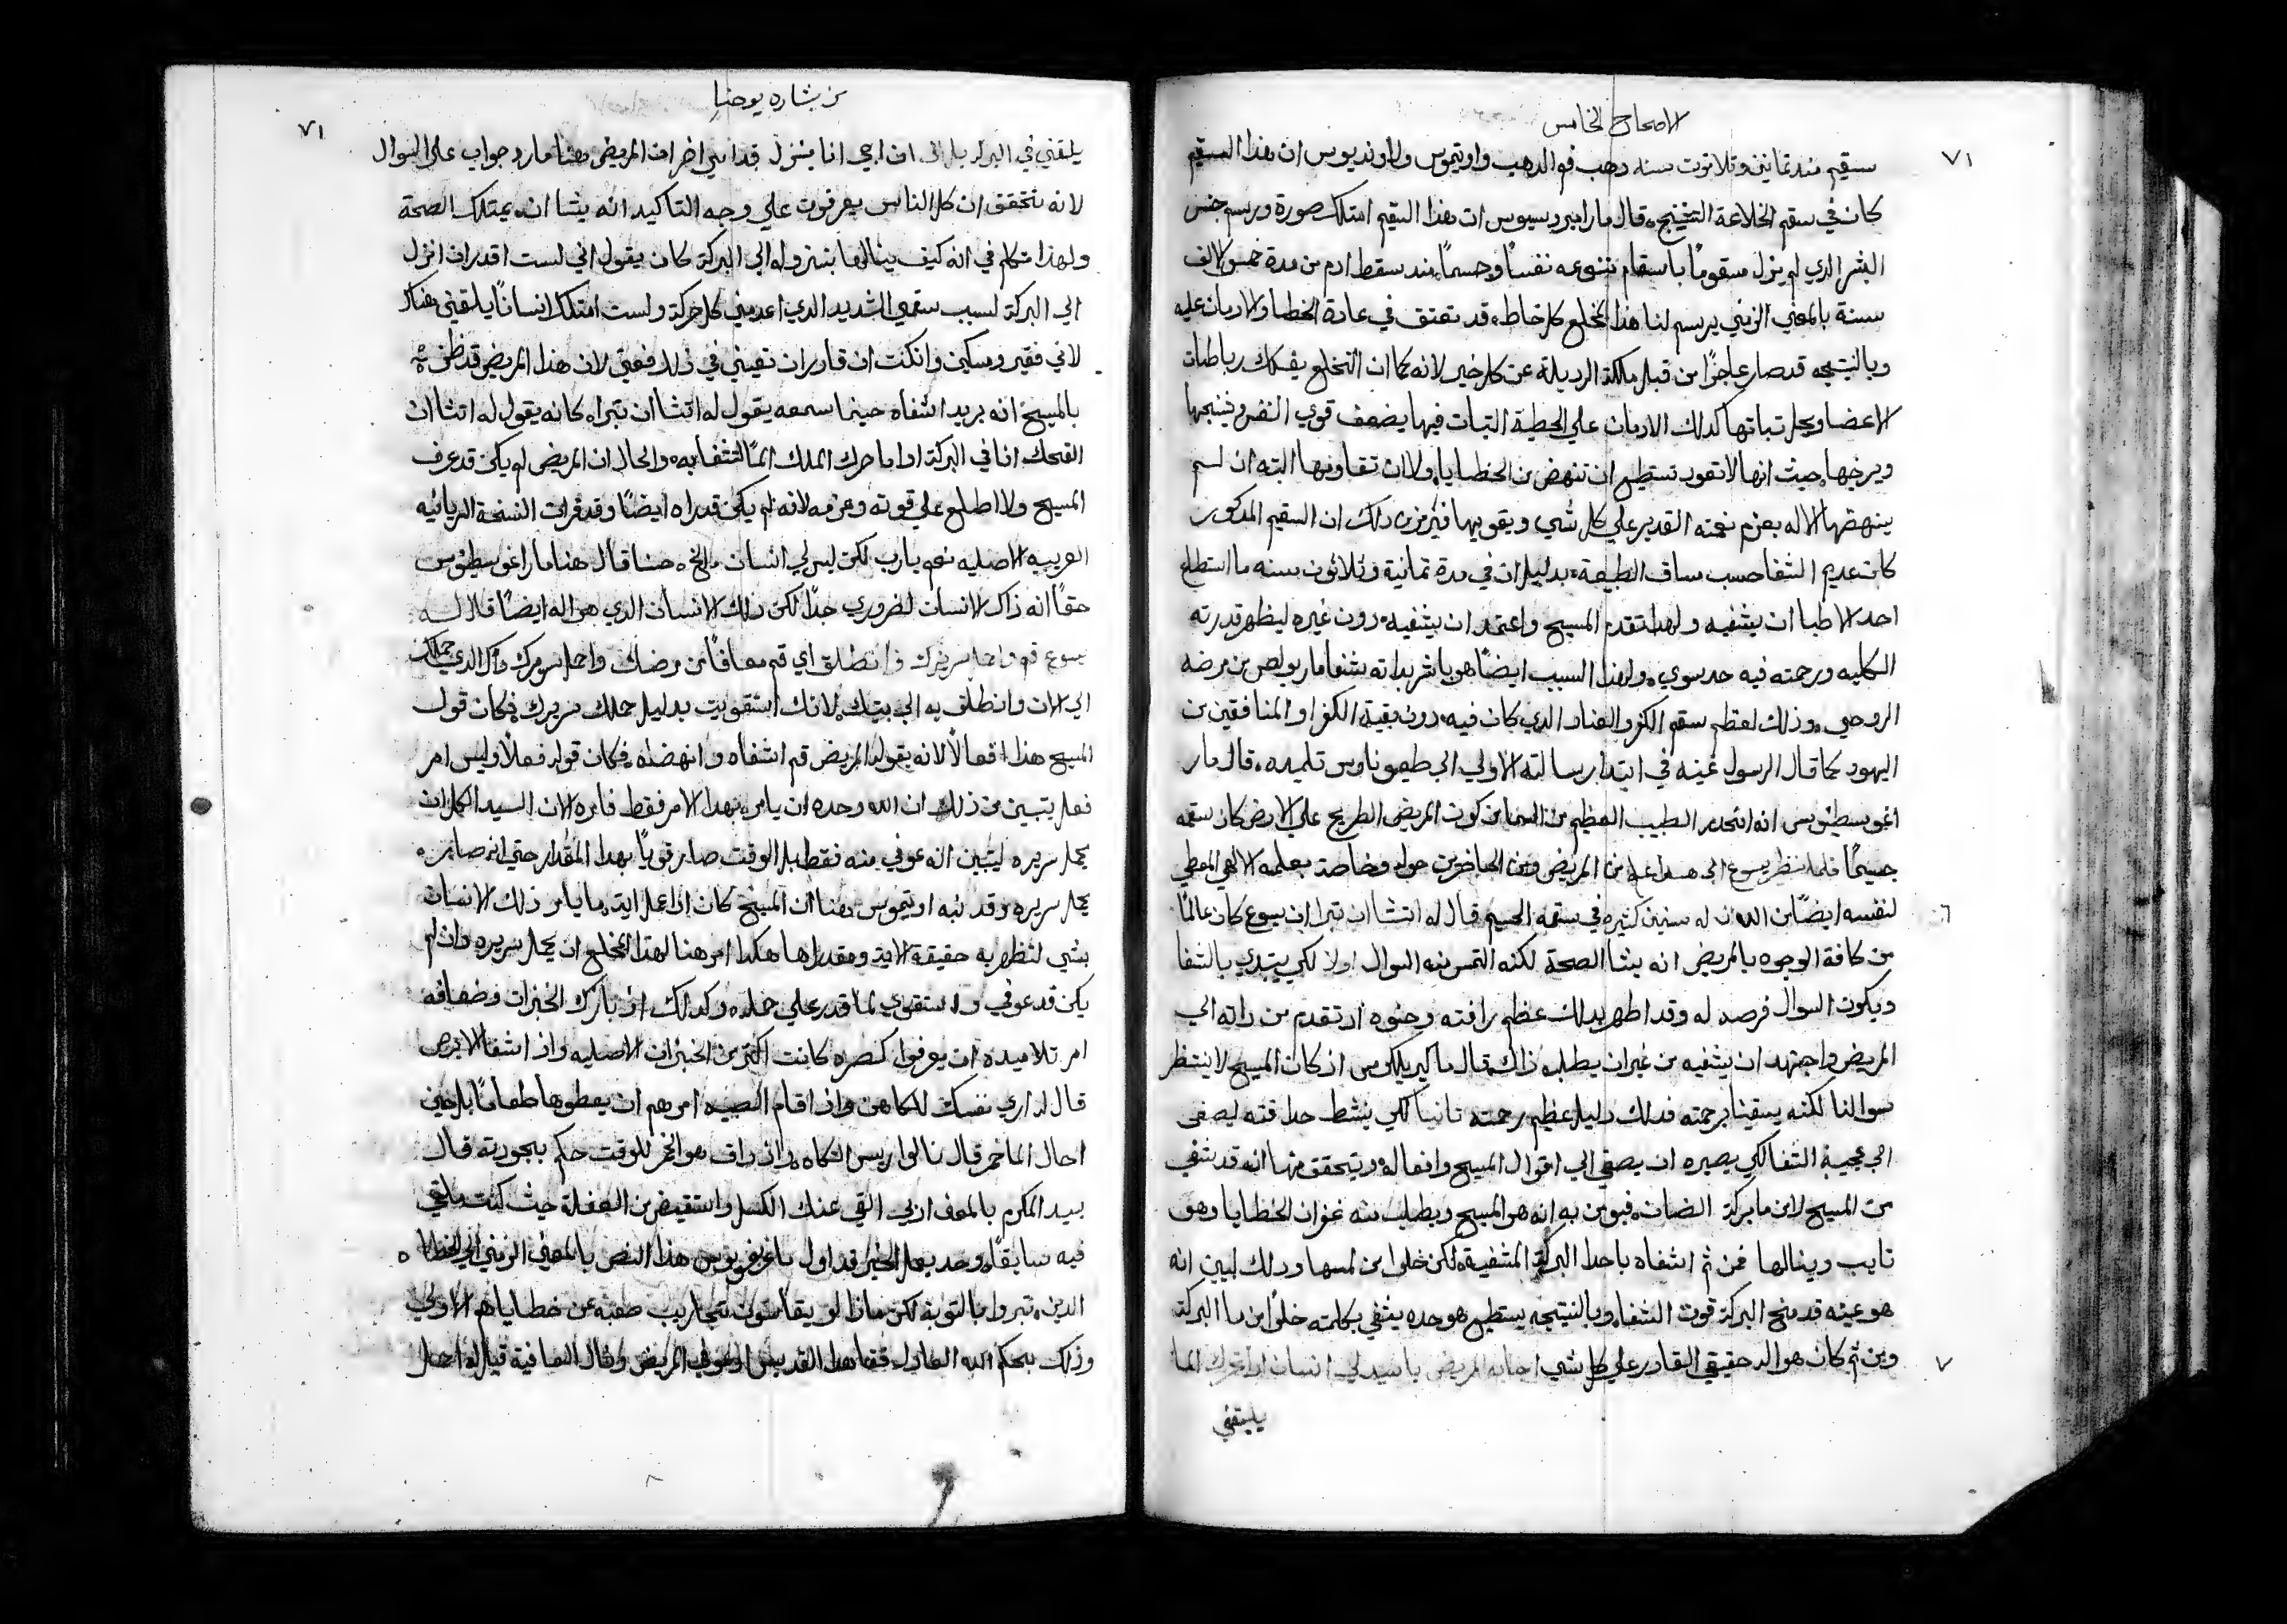 الاصحاح الخامس
٧١
سقيم مند تمانين وتلاتون سنه دهب فم الدهب واوتيموس ولاونديوس ان هذا السقيم
كان في سقم الخلاعة التفنيج، قال مار امبروسيوس ان هذا السقيم امتلك صورة ورسم جنس
البشر الدي لم يزل مسقومًا باسقام متنوعه نفسًا وجسمًا، مند سقط ادم من مدة خمس الاف
سنة بالمعني الرمزي يرسم لنا هذا المخلع كل خاطء، قد تعتق في عادة الخطا والادمان عليه
وبالنتيجه قد صار عاجزًا من قبل ملكة الرديلة عن كل خير لانه كما ان التخلع يفكك رباطات
الاعضا ويحل تباتها كدلك الادمان علي الخطية التبات فيها يضعف قوي النفس وينبجها
ويرخيها، حيث انها لا تعود تستطيع ان تنهض من الخطايا، ولا ان تقاومها البته ان لم
ينهضها الاله بعزم نعمته القدير علي كل شي، ويقويها فيرمز من دلك ان السقيم المدكور
كان عديم الشفا حسب مساق الطبيعة، بدليل ان في مدة تمانية وتلاتون سنه ما استطاع
احد الاطبا ان يشفيه ولهدا تقدم المسيح واعتمد ان يشفيه، دون غيره ليظهر قدرته
الكليه ورحمته فيه حد سوي، ولهدا السبب ايضًا هو باشر بداته شفا مار بولص من مرضه
الروحي، وذلك لعظم سقم الكفر والعناد الدي كان فيه، دون بقية الكفرا والمنافقين من
اليهود كما قال الرسول عينه في ابتدا رسالته الاولي الي طيموتاوس تلميده، قال مار
اغوسطينوس انه انحدر الطبيب العظيم من السما من كون المريض الطريح علي الارض كان سقمه
جسيمًا فلما نظر يسوع الي هدا علم من المريض ومن الحاضرين حوله وخاصة بعلمه الالهي المعطي
٦
لنفسه ايضًا من الله ان له سنين كتيره في سقمه الجسيم قال له اتشا ان تبرا ان يسوع كان عالمًا
من كافة الوجوه بالمريض انه يشا الصحة لكنه التمس منه السوال اولا لكي يبتدي بالشفا
ويكون السوال فرصه له وقد اظهر بدلك عظم رافته وحنوه اد تقدم من داته الي
المريض واجتهد ان يشفيه من غير ان يطلب ذاك، قال مار كيريلكوس اذ كان المسيح لا ينتظر
سوالنا لكنه يسبقنا برحمته فدلك دليل عظيم رحمته تانيا لكي ينشط حداقته ليصغى
الي عجيبة الشفا لكي يصيره ان يصغي الي اقوال المسيح وافعاله، ويتحقق منها انه قد شفي
من المسيح لا من ما بركة الضان، فيومن به انه هو المسيح ويطلب منه غفران الخطايا وهو
تايب وينالها فمن ثم اشفاه باحدا البركة المشفية، لكن خلوا من لمسها ودلك ليبين انه
هو عينه قد منح البركة قوت الشفا، وبالنتيجه يستطيع هو وحده يشفي بكلمته خلوًا من ما البركة
٧
ومن ثم كان هو اله حقيقي القادر علي كل شي اجابه المريض يا سيد لي انسان ادا تحرك الما
يلقني
من بشاره يوحنا
٧١
يلقني في البركه بل الي ان اجي انا ينزل قدامي اخر ان المريض هنا ما رد جواب علي السوال
لانه متحقق ان كل الناس يعرفون علي وجه التاكيد انه يشا ان يمتلك الصحة
ولهذا تكلم في انه كيف ينالها بنزوله الي البركة كان يقول اني لست اقدر ان انزل
الي البركة لسبب سقمي الشديد الدي اعدمني كل حركة ولست امتلك انسانًا يلقني هناك
لاني فقير ومسكين وان كنت ان قادر ان تعينني في ذلك فعيني لان هذا المريض قد ظن
بالمسيح انه يريد اشفاه حينما سمعه يقول له اتشا ان تبرا، كانه يقول له اتشا ان
القحك انا في البركة ادا ما حرك الملك المًا لتشفا به، والحال ان المريض لم يكن قد عرف
المسيح ولا اطلع علي قوته وعزمه لانه لم يكن قد راه ايضًا وقد قرات النسخة السريانيه
العربيه الاصليه نعم يا رب لكن ليس لي انسان، الخ، حسنا قال هنا مار اغوسطينوس
حقًا انه ذاك الانسان لضروري جدًا لكن دلك الانسان الدي هو اله ايضًا قال له
يسوع قم واحمل سريرك وانطلق اي قم معافًا من مرضك واحمل سريرك الدي حملك
الي الان وانطلق به الي بيتك، لانك اشتقويت بدليل حملك سريرك، فكان قول
المسيح هذا فعالًا لانه بقوله للمريض قم اشفاه وانهضه، فكان قوله فعلًا وليس امر
فعل يتبين من ذلك ان الله وحده ان يامر، بهدا الامر فقط فامره الان السيد الكل ان
يحمل سريره ليتبين انه عوفي منه فقط بل الوقت صار قويًا بهدا المقدار حتي انه صار
يحمل سريره وقد نبه اوتيموس هنا ان المسيح كان اذا عمل اية، ما يامر ذلك الانسان
بشي لتظهر به حقيقة الاية ومقدارها هكدا امر هنا لهذا المخلع ان يحمل سريره وان لم
يكن قد عوفي واستقوي لما قدر علي حمله، وكدلك اذ بارك الخبزات وضعافه
امر تلاميده ان يوفوا كسره كانت اكتر من الخبزات الاصليه واذ اشفا الابرص
قال له اري نفسك للكاهن واذ اقام الصبيه امرهم ان يعطوها طعامًا بل حين
احال الما خمر قال ناولوا ريس التكاه، واذ داق هو الخمر للوقت حكم بجودته قال
بيد المكرم بالمعف ادبي القي عنك الكسل واستقيض من الغفلة حيث كنت ملقي
فيه سابقًا، وجد بعمل الخير قد اول باغريغوريوس هذا النص بالمعني الرمزي الي الخطاه
الدين، تبروا بالتوبة لكن مادا لو يقاسون تجاريب صعبة عن خطاياهم الاولي
وذلك بحكم الله العادل، فقا هدا القديس او عوفي المريض ونال العافية قيل له احمل